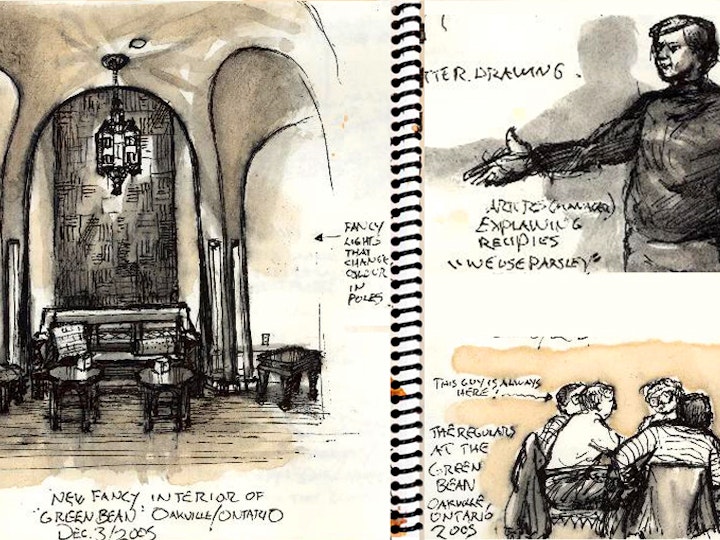 FANCY
LIGHTS
THAT
CHANGE
COLOUR
IN
POLES
"NEW FANCY INTERIOR OF
"GREEN BEAN" OAKVILLE/ONTARIO
DEC. 3/2005
TTER DRAWING.
(MANAGER)
EXPLAINING
RECIPIES
"WE USE PARSLEY"
THIS GUY IS ALWAYS
HERE!
THE REGULARS
AT THE
GREEN
BEAN
OAKVILLE,
ONTARIO
2005